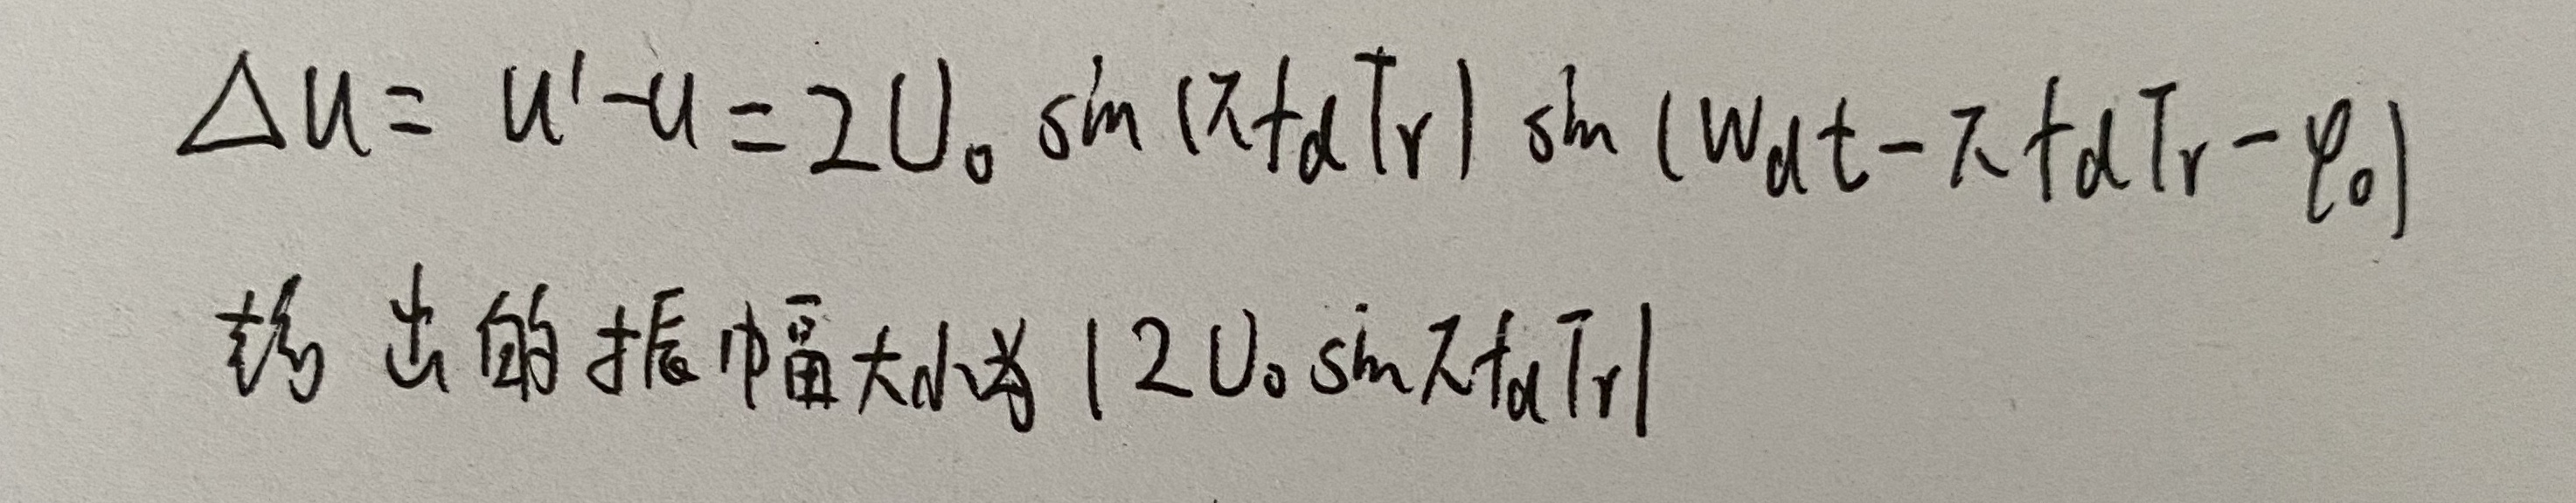 Δu = u' - u = 2U₀ sin (πf_dT_r) sin (W_dt - πf_dT_r - φ₀)
出的振幅大小为 |2U₀ sinπf_dT_r|